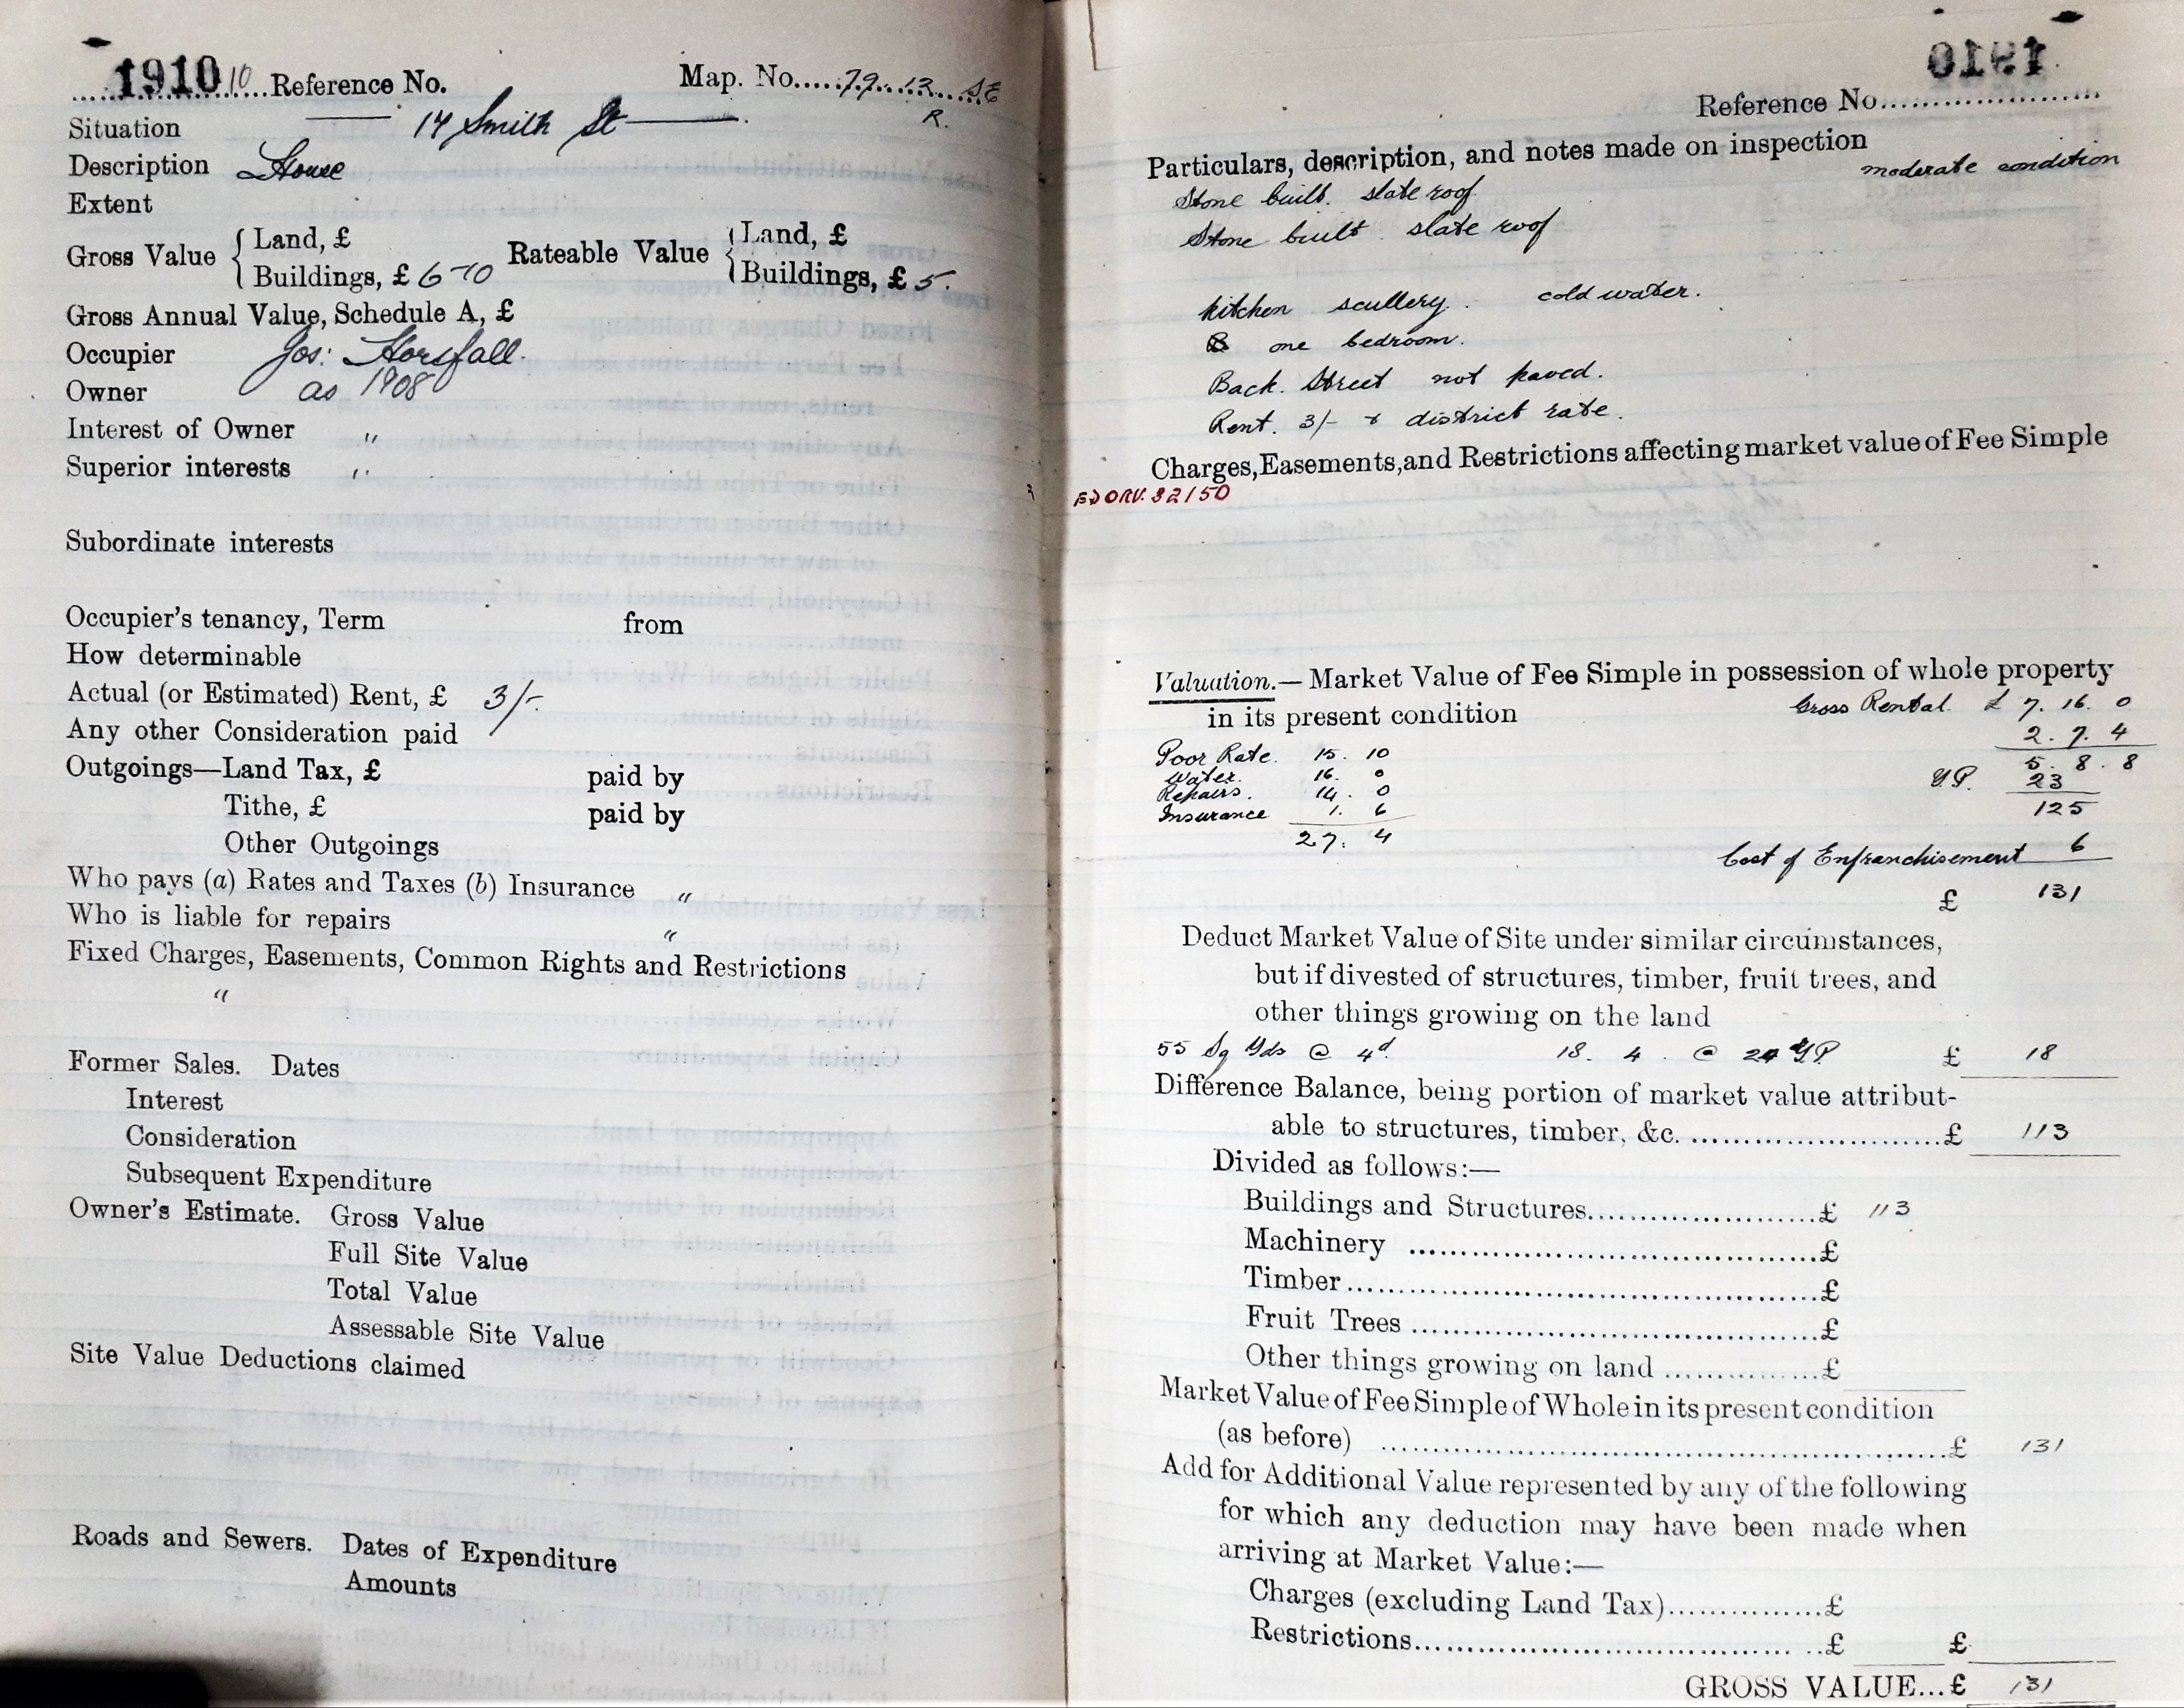 1910 10 Reference No. Map. No. 79.13 SE
R.
Situation 14 Smith St
Description House
Extent
Gross Value { Land, £ Rateable Value { Land, £
Buildings, £ 6-10 Buildings, £ 5.
Gross Annual Value, Schedule A, £
Occupier Jos: Horsfall.
Owner as 1908
Interest of Owner "
Superior interests "
Subordinate interests
Occupier's tenancy, Term from
How determinable
Actual (or Estimated) Rent, £ 3/-.
Any other Consideration paid
Outgoings—Land Tax, £ paid by
Tithe, £ paid by
Other Outgoings
Who pays (a) Rates and Taxes (b) Insurance "
Who is liable for repairs "
Fixed Charges, Easements, Common Rights and Restrictions
"
Former Sales. Dates
Interest
Consideration
Subsequent Expenditure
Owner's Estimate. Gross Value
Full Site Value
Total Value
Assessable Site Value
Site Value Deductions claimed
Roads and Sewers. Dates of Expenditure
Amounts
1910
Reference No.
Particulars, description, and notes made on inspection
moderate condition
Stone built. slate roof
Stone built. slate roof
kitchen scullery. cold water.
one bedroom.
Back. Street not paved.
Rent. 3/- + district rate.
Charges, Easements, and Restrictions affecting market value of Fee Simple
32/50
Valuation.— Market Value of Fee Simple in possession of whole property
in its present condition
Gross Rental. £ 7. 16. 0
2. 7. 4
Poor Rate. 15. 10
5. 8. 8
Water. 16. 0
Y.P. 23
Repairs. 14. 0
125
Insurance 1. 6
27. 4
Cost of Enfranchisement 6
£ 131
Deduct Market Value of Site under similar circumstances,
but if divested of structures, timber, fruit trees, and
other things growing on the land
55 Sq Yds @ 4d. 18. 4. @ 20 Y.P. £ 18
Difference Balance, being portion of market value attribut-
able to structures, timber, &c. £ 113
Divided as follows:—
Buildings and Structures £ 113
Machinery £
Timber £
Fruit Trees £
Other things growing on land £
Market Value of Fee Simple of Whole in its present condition
(as before) £ 131
Add for Additional Value represented by any of the following
for which any deduction may have been made when
arriving at Market Value:—
Charges (excluding Land Tax) £
Restrictions £ £
GROSS VALUE...£ 131